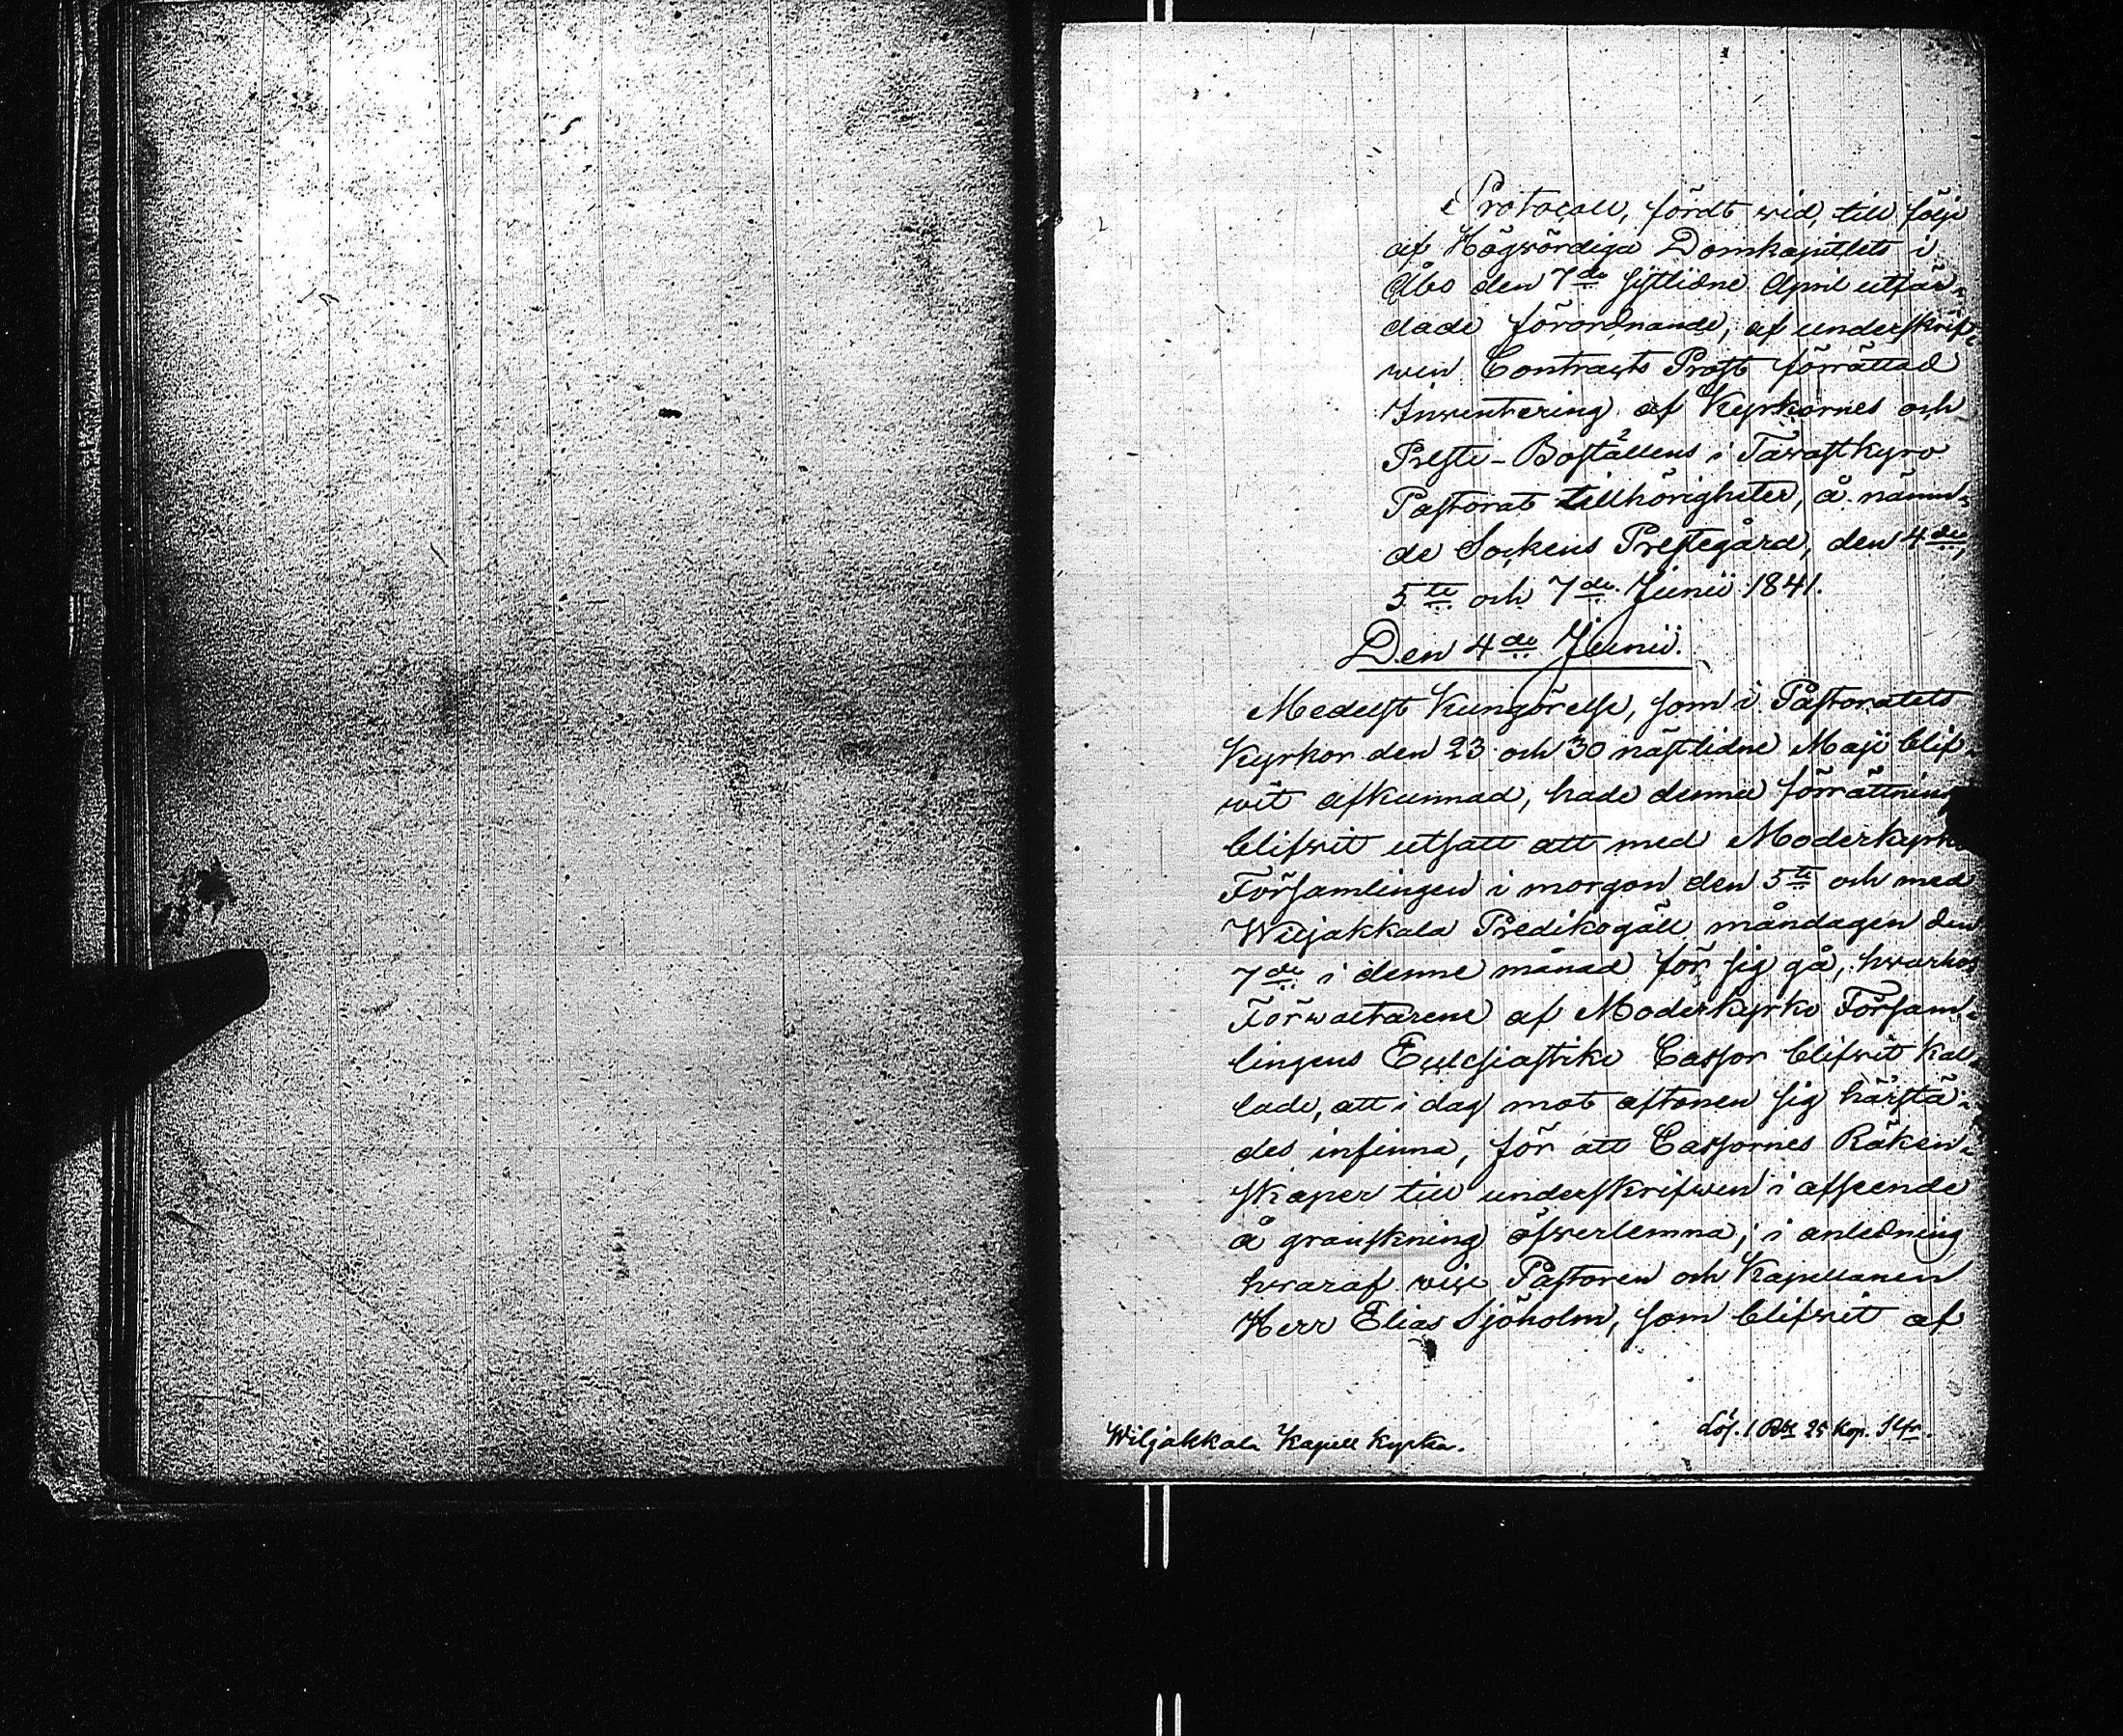 Protocoll, fördt wid, till följe
af Högwördiga Domkapitlets i
Åbo den 7de sistlidne April utfär-
dade förordnande, af underskrif-
wen Contracts Prost förrättad
Inwentering af Kyrkornes och
Preste-Boställens i Tawastkyro
Pastorat tillhörigheter, å nämn-
de Sockens Prestegård, den 4de,
5te och 7de Junii 1841.
Den 4de Junii.
Medelst Kungörelse, som i Pastoratets
Kyrkor den 23 och 30 nästlidne Maji blif-
wit afkunnad, hade denne förrättning
blifwit utsatt att med Moderkyrko
Församlingen i morgon den 5te och med
Wiljakkala Predikogäll måndagen den
7de i denne månad för sig gå, hwarhos
Förwaltarene af Moderkyrko Försam-
lingens Ecclesiastike Cassor blifwit kal-
lade, att i dag mot aftonen sig härstä-
des infinna, för att Cassornes Räken-
skaper till underskrifwen i afseende
å granskning öfwerlemna; i anledning
hwaraf wice Pastoren och Kapellanen
Herr Elias Sjöholm, som blifwit af
Wiljakkala Kapell Kyrka.
Lös. 1 Rbl 25 Kop. Slfr.